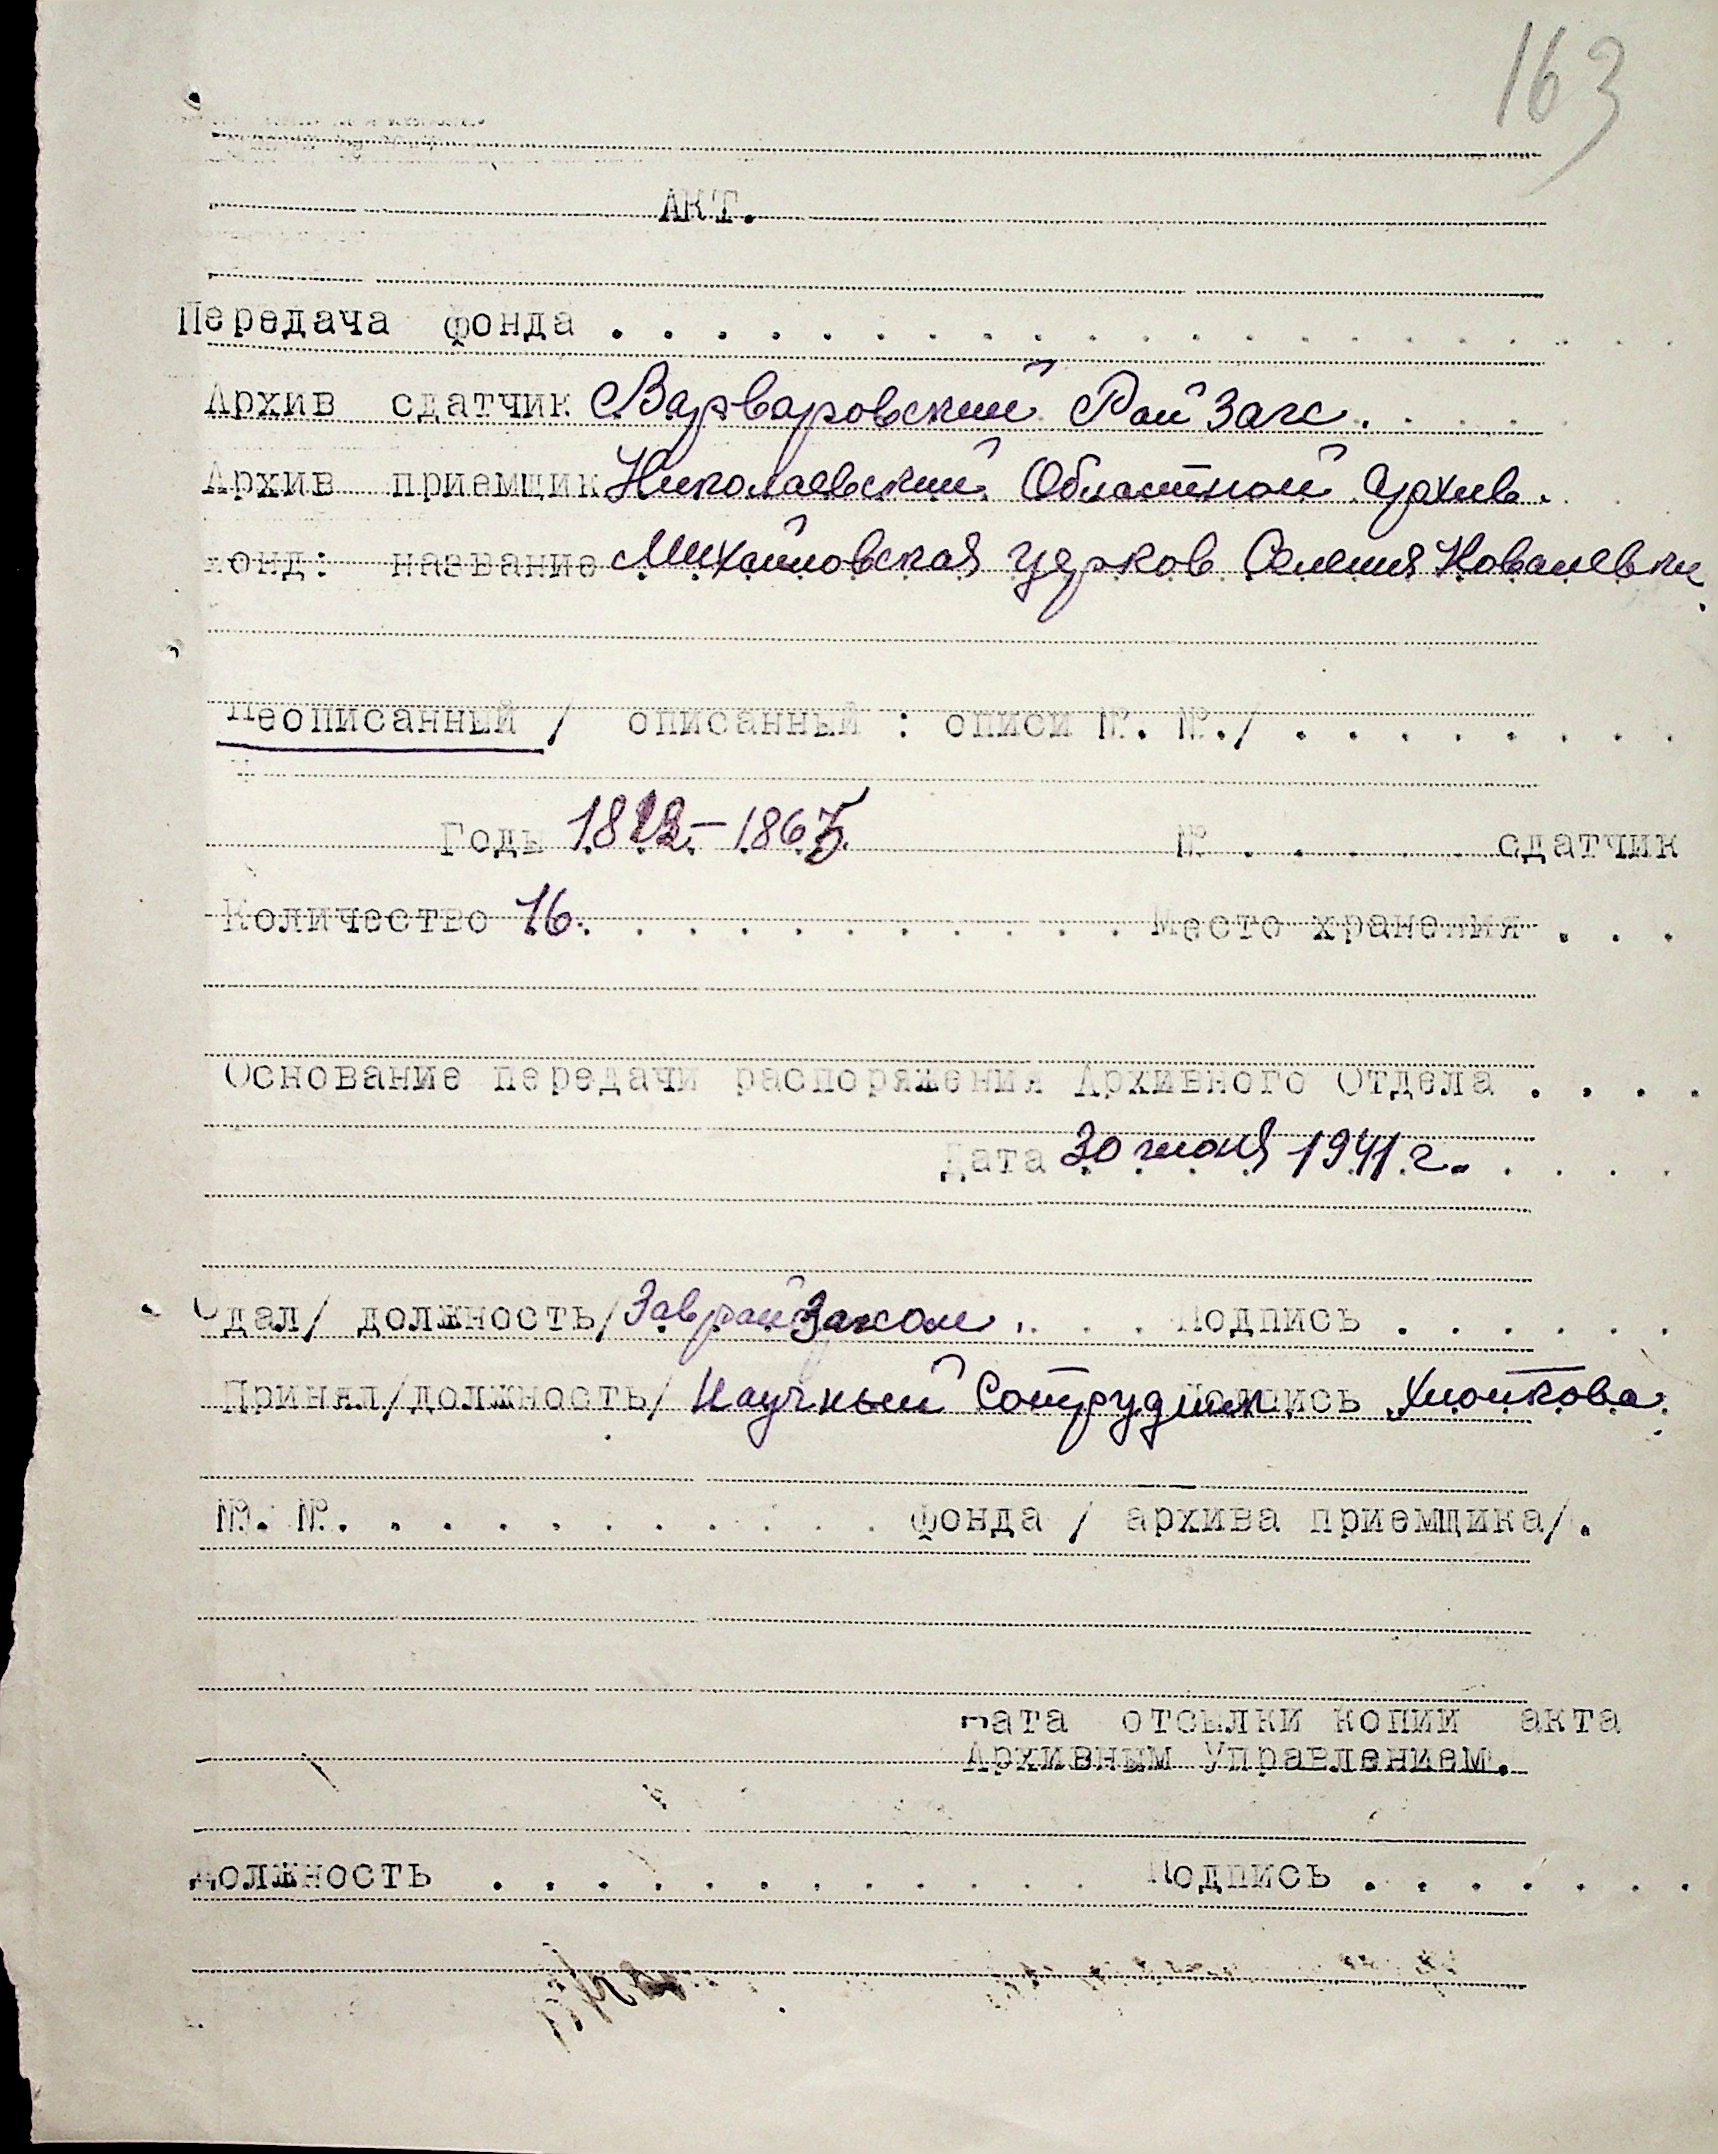 163
АКТ.
Передача фонда . . . . . . . . . . . . . . . . . . . .
Архив сдатчик Варваровский РайЗагс. . . . .
Архив приемщик Николаевский Областной Архив.
Фонд: название Михайловская церков Селения Ковалевки.
Неописанный / описанный : описи №. №./ . . . . . . . .
Годы 1822 - 1865. № . . . . . сдатчик
Количество 16. . . . . . . . . . . Место хранения . . .
Основание передачи распоряжения Архивного Отдела . . . .
Дата 30 июня 1941 г. . . . .
Сдал/ должность/ ЗаврайЗагсом . . . . Подпись . . . . . .
Принял/должность/ Научный Сотрудник Подпись
№. №. . . . . . . . . . . . фонда / архива приемщика/.
Дата отсылки копии акта
Архивным Управлением.
Должность . . . . . . . . . . . . Подпись . . . . . . .